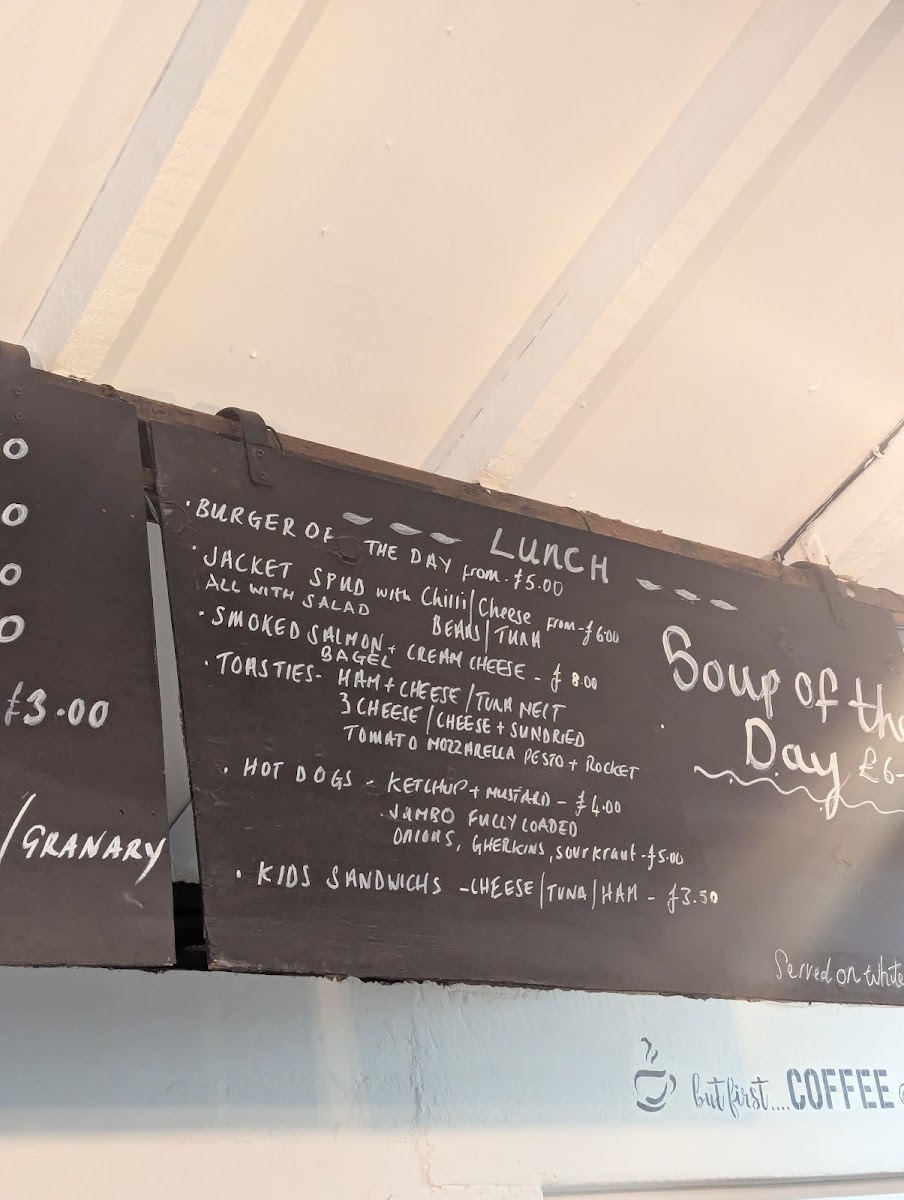 0
0
0
0
£3.00
/GRANARY
LUNCH
· BURGER OF THE DAY from - £5.00
· JACKET SPUD with Chilli/Cheese From - £6.00
ALL WITH SALAD BEANS/TUNA
· SMOKED SALMON + CREAM CHEESE - £8.00
BAGEL
· TOASTIES - HAM + CHEESE/TUNA MELT
3 CHEESE/CHEESE + SUNDRIED
TOMATO MOZZARELLA PESTO + ROCKET
· HOT DOGS - KETCHUP + MUSTARD - £4.00
JUMBO FULLY LOADED
ONIONS, GHERKINS, sourkraut - £5.00
· KIDS SANDWICHS - CHEESE/TUNA/HAM - £3.50
Soup of the
Day £6-
Served on white
but first.... COFFEE